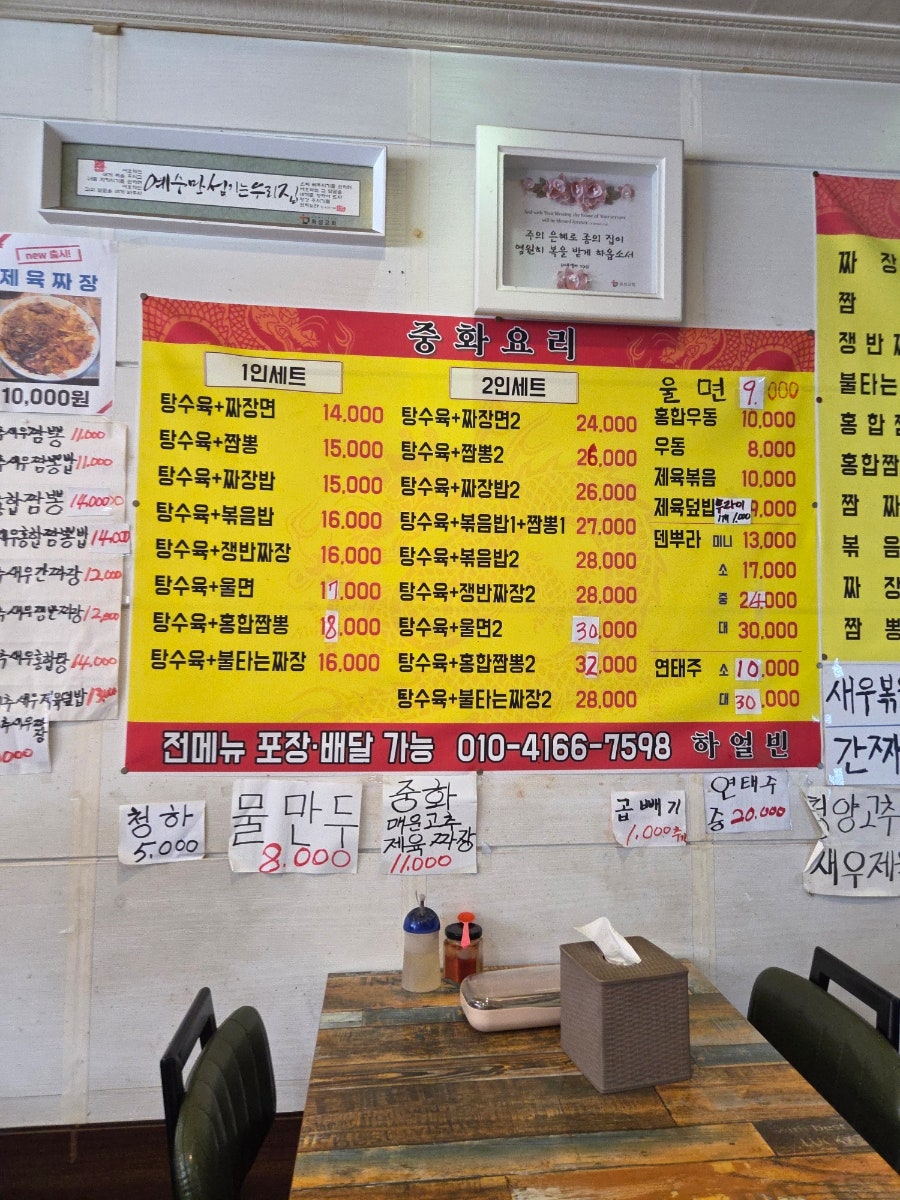 예수만 섬기는 우리집
주의 은혜로 종의 집이
영원히 복을 받게 하옵소서
new 출시!
제육짜장
10,000원
짬뽕 11,000
짬뽕밥 11,000
홍합짬뽕 14,000
새우홍합짬뽕밥 14,000
새우간짜장 12,000
새우쟁반짜장 12,000
14,000
새우제육덮밥 13,000
중화요리
1인세트
탕수육+짜장면 14.000
탕수육+짬뽕 15,000
탕수육+짜장밥 15,000
탕수육+볶음밥 16,000
탕수육+쟁반짜장 16,000
탕수육+울면 17,000
탕수육+홍합짬뽕 18,000
탕수육+불타는짜장 16,000
2인세트
탕수육+짜장면2 24,000
탕수육+짬뽕2 26,000
탕수육+짜장밥2 26,000
탕수육+볶음밥1+짬뽕1 27,000
탕수육+볶음밥2 28,000
탕수육+쟁반짜장2 28,000
탕수육+울면2 30,000
탕수육+홍합짬뽕2 32,000
탕수육+불타는짜장2 28,000
울면 9,000
홍합우동 10,000
우동 8,000
제육볶음 10,000
제육덮밥 9,000
덴뿌라 미니 13,000
소 17,000
중 24,000
대 30,000
연태주 소 10,000
대 30,000
전메뉴 포장·배달 가능 010-4166-7598 하얼빈
짜 장
짬
쟁반
불타는
홍합
홍합짬
짬 짜
볶음
짜 장
짬 뽕
새우볶
간짜
새우제
청하
5,000
물만두
8.000
중화
매운고추
제육짜장
11.000
곱빼기
1.000추가
연태주
중 20.000